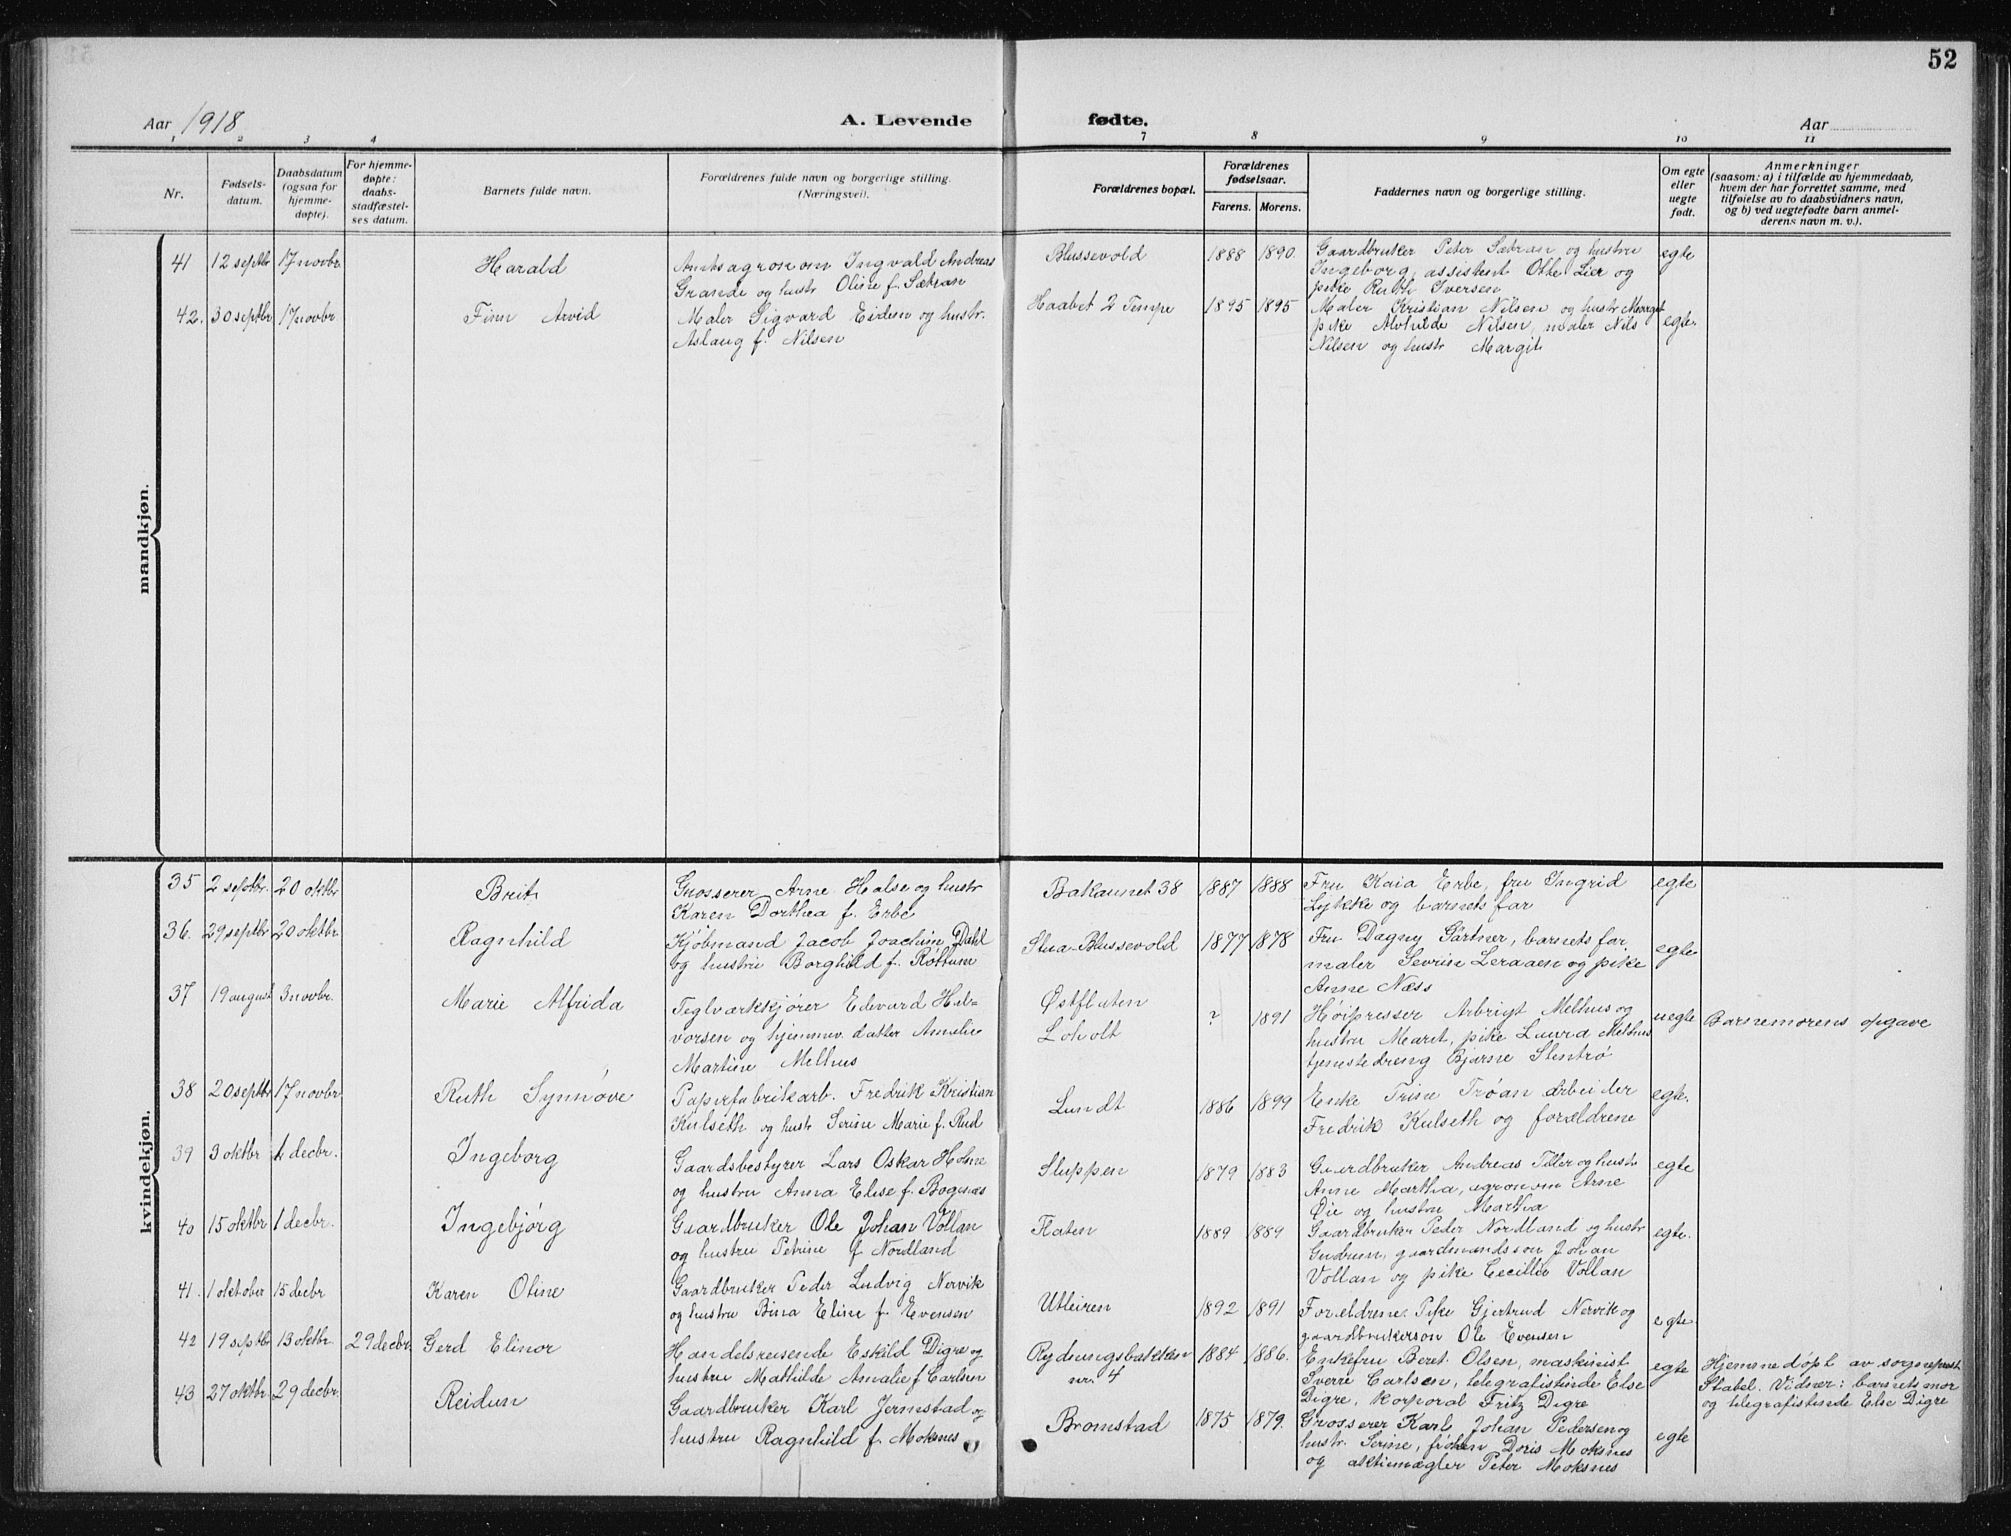 52
Aar 1918
A. Levende fødte.
Aar
1 2 3 4 7 8 9 10 11
Nr.
Fødsels-
datum.
Daabsdatum
(ogsaa for
hjemme-
døpte).
For hjemme-
døpte:
daabs-
stadfæstel-
ses datum.
Barnets fulde navn.
Forældrenes fulde navn og borgerlige stilling.
(Næringsvei).
Forældrenes bopæl.
Forældrenes
fødselsaar.
Farens. Morens.
Faddernes navn og borgerlige stilling.
Om egte
eller
uegte
født.
Anmerkninger
(saasom: a) i tilfælde av hjemmedaab,
hvem der har forrettet samme, med
tilføielse av to daabsvidners navn,
og b) ved uegtefødte barn anmel-
derens navn m. v.).
mandkjøn.
41 12 septbr 17 novbr. Harald
Amtsagronom Ingvald Andreas
Grande og hustr Oline f. Sætran
Blussevold 1888 1890.
Gaardbruker Peter Sætran og hustru
Ingeborg, assistent Otte Lier og
pike Ruth Iversen
egte
42. 30 septbr 17 novbr Finn Arvid
Maler Sigvard Eidem og hustr.
Aslaug f. Nilsen
Haabet 2 Tempe 1895 1895
Maler Kristian Nilsen og hustr Marget
pike Alvhilde Nilsen, maler Nils
Nilsen og hustr Margit
egte.
kvindekjøn.
35 2 septbr. 20 oktbr Brit
Grosserer Arne Halse og hustr
Karen Dorthea f. Erbe
Bakaunet 38 1887 1888
Fru Kaia Erbe, fru Ingrid
Lykke og barnets far
egte
36. 29 septbr 20 oktbr. Ragnhild
Kjøbmand Jacob Joachim Dahl
og hustru Borghild f. Rottum
Stua-Blussevold 1877 1878
Fru Dagny Gärtner, barnets far,
maler Sevrin Leraaen og pike
Anne Næss
egte
37 19 august 3 novbr. Marie Alfrida
Teglværkkjører Edvard Hal-
vorsen og hjemmev. datter Amalie
Martine Melhus
Østflaten
Loholt
? 1891
Høipresser Arbrigt Melhus og
hustru Maret, pike Laura Melhus
tjenestedreng Bjarne Stentrø
uegte
Barnemorens opgave
38 20 septbr 17 novbr Ruth Synnøve
Papirfabrikarb. Fredrik Kristian
Kulseth og hustr Serine Marie f. Rud
Lundt 1886 1899
Enke Trine Trøan arbeider
Fredrik Kulseth og forældrene
egte.
39 3 oktbr 1 decbr. Ingeborg
Gaardsbestyrer Lars Oskar Holme
og hustru Anna Elise f. Bognæs
Sluppen 1879 1883
Gaardbruker Andreas Tiller og hustr
Anne Martha, agronom Arne
Øie og hustru Martha
egte
40 15 oktbr 1 decbr. Ingebjørg
Gaardbruker Ole Johan Vollan
og hustru Petrine f. Nordland
Flaten 1889 1889
Gaardbruker Peder Nordland og hustr
Gudrun, gaardmandssøn Johan
Vollan og pike Cecillie Vollan
egte.
41. 1 oktober 15 decbr Karen Oline
Gaardbruker Peder Ludvig Nervik
og hustru Bina Eline f. Evensen
Utleiren 1892 1891
Forældrene. Pike Gjertrud Nervik og
gaardbrukersøn Ole Evensen
egte.
42 19 septbr 13 oktbr. 29 decbr. Gerd Elinor
Handelsreisende Eskild Digre og
hustru Mathilde Amalie f Carlsen
Rydningsbakken
nr. 4
1884 1886.
Enkefru Beret Olsen, maskinist
Sverre Carlsen, telegrafistinde Else
Digre, korporal Fritz Digre
egte
Hjemmedøpt av sogneprest
Stabel. Vidner: barnets mor
og telegrafistinde Else Digre
43 27 oktbr. 29 decbr. Reidun
Gaardbruker Karl Jermstad og
hustru Ragnhild f. Moksnes
Bromstad 1875 1879.
Grosserer Karl Johan Pedersen og
hustr. Serine, frøken Doris Moksnes
og aktiemægler Peter Moksnes
egte